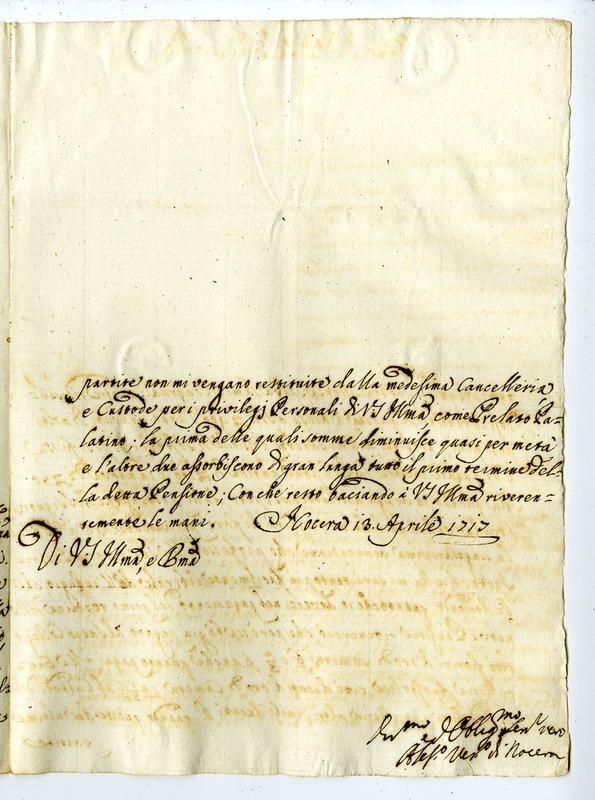 partite non mi vengano restituite dalla medesima Cancelleria
e Custode per i privilegj Personali di VS Illma come Prelato Pa-
latino; la prima delle quali somme diminuisce quasi per metà
e l'altre due assorbiscono di gran lunga tutto il primo termine del-
la detta Pensione; Con che resto baciando à VS Illma riveren-
temente le mani. Nocera 13. Aprile 1717
Di V.S Illma, e Rma
Devmo ed Obligmo Sere vero
Aless. Vesc. di Nocera